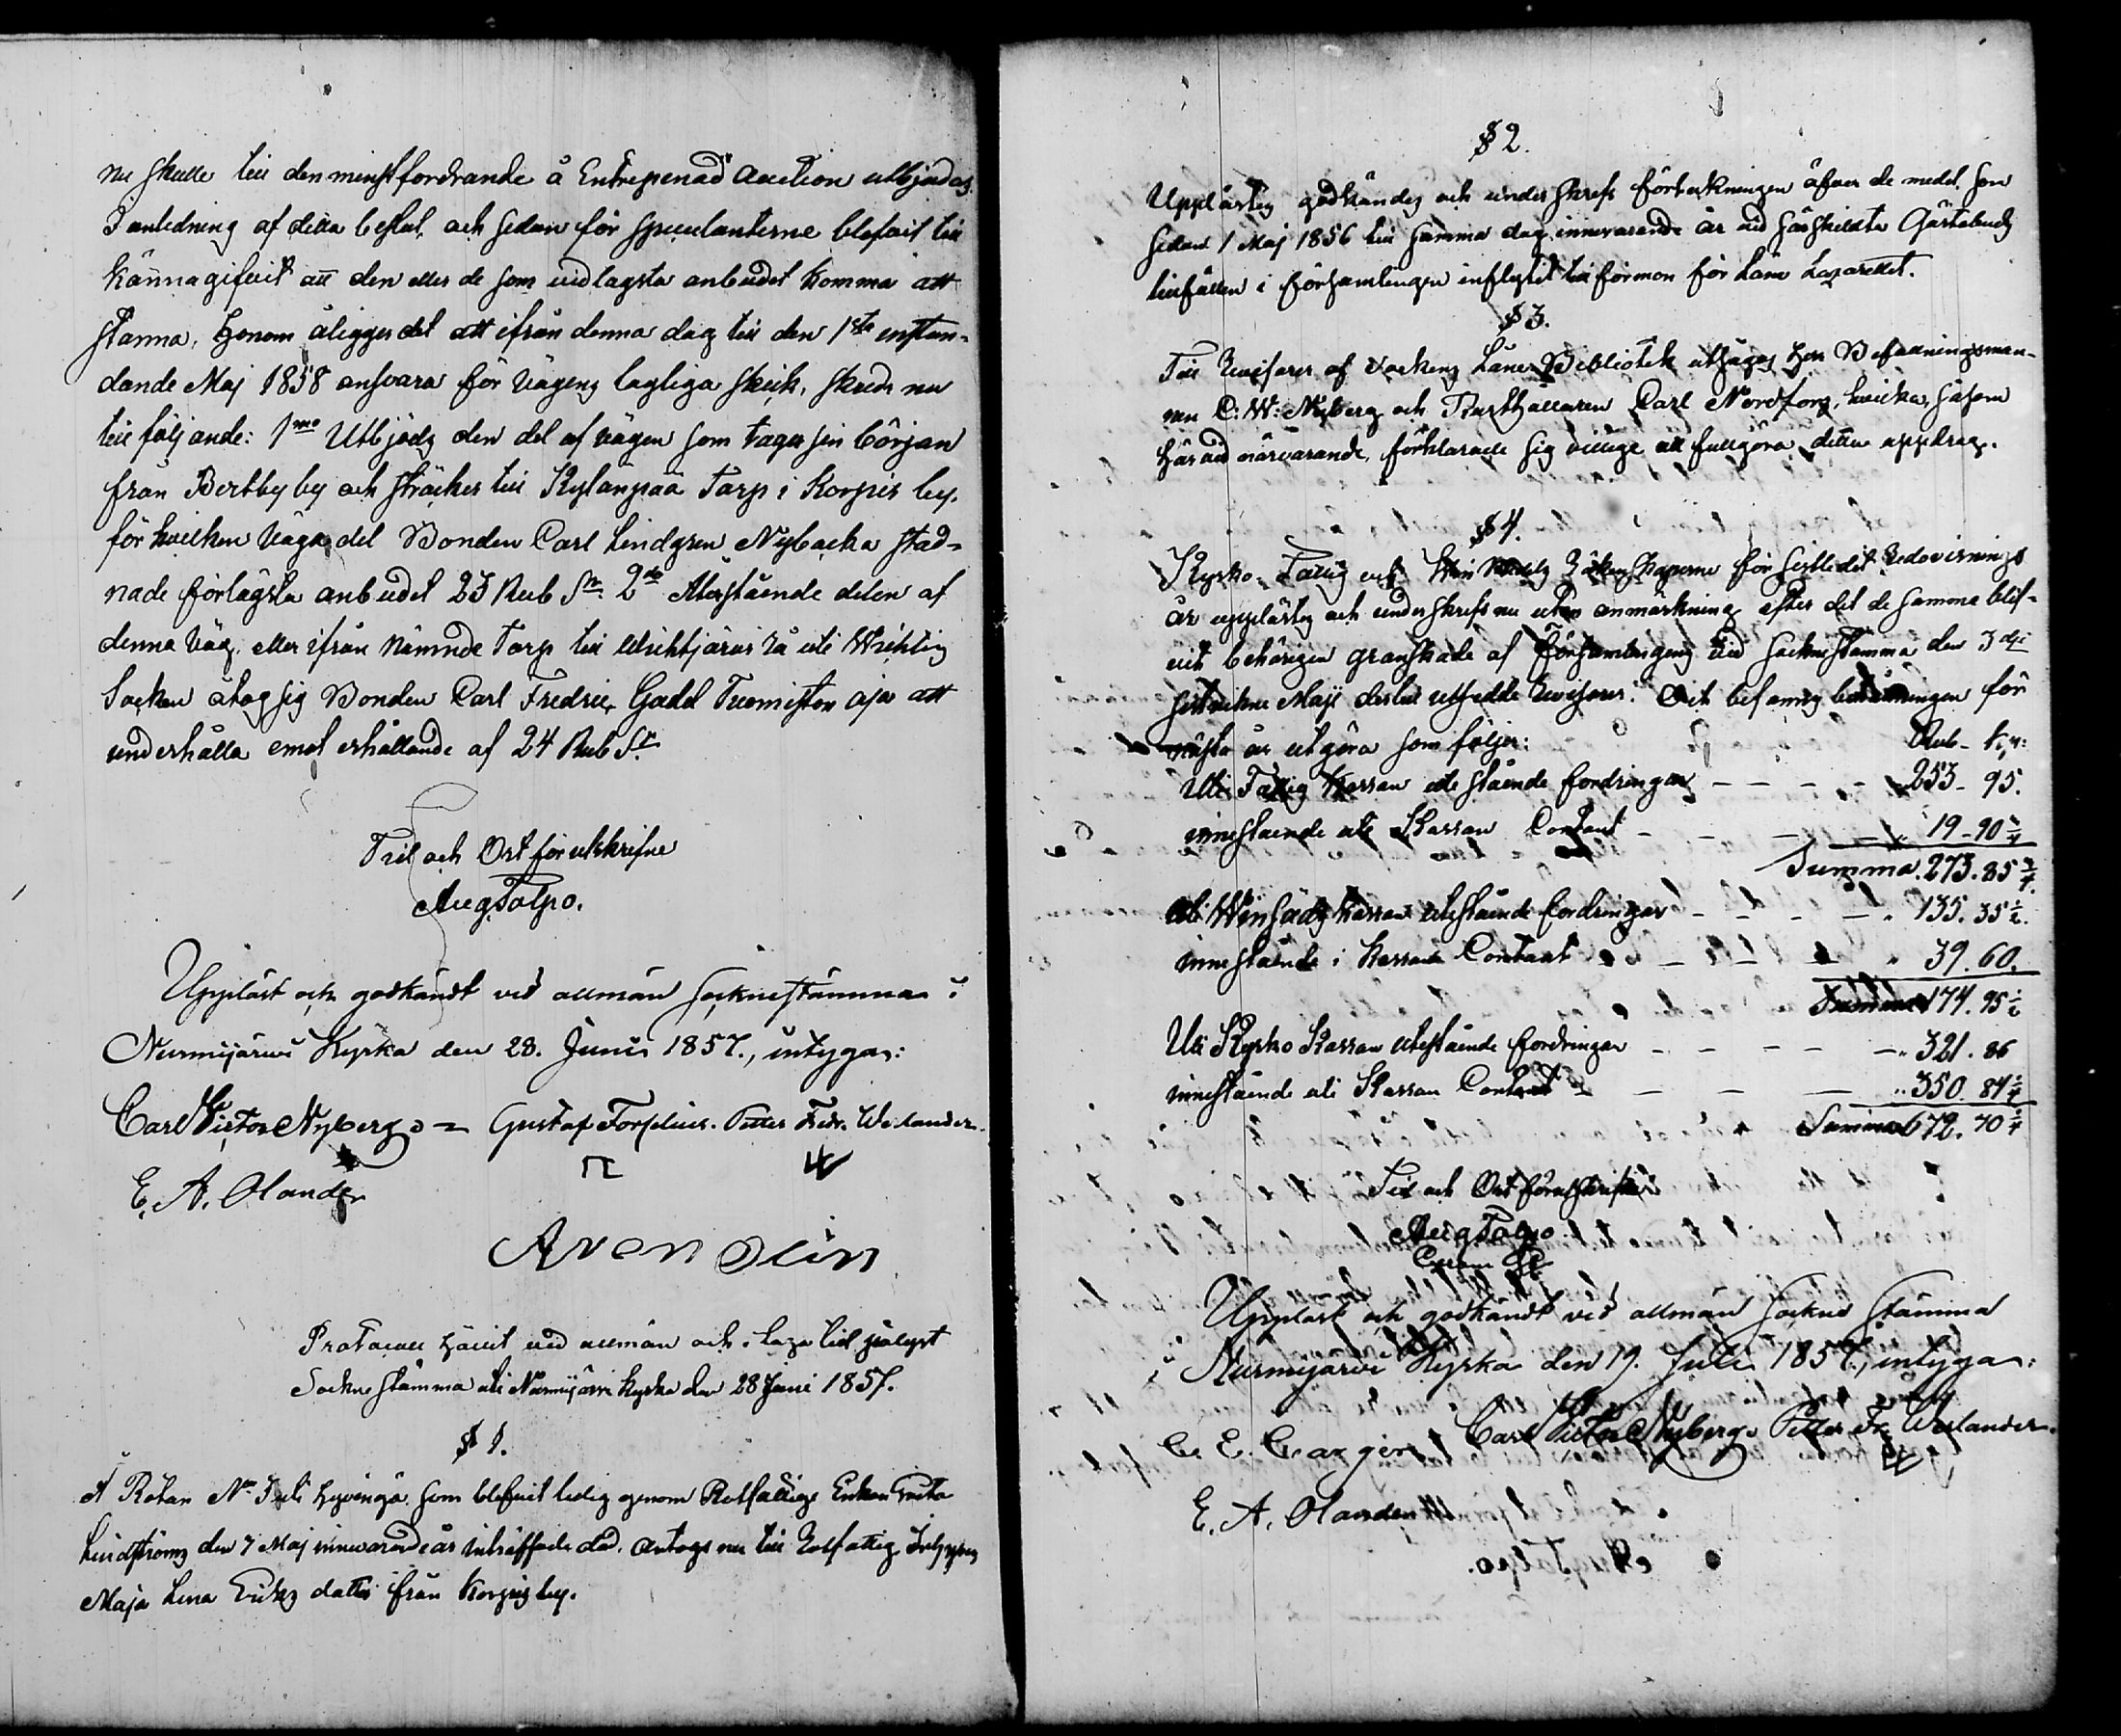 nu skulle till den minst fordrande å Entrepenad Auction utbjudas.
I anledning af detta beslut, och sedan för speculanterne blefvit till
kännagifvit att den eller de som vid lagsta anbudet komma att
stanna, honom åligger det att ifrån denna dag till den 1sta instun-
dande Maj 1858 ansvara för vägens lagliga skick, skedde nu
till följande: 1mo Utbjöds den del af vägen som tager sin början
från Bertby by och sträcker till Kylänpää Torp i Korpis by.
för hvilken vägadel Bonden Carl Lindgren Nybacka stad-
nade för lägsta anbudet 23 Rub Sr. 2do Återstående delen af
denna väg, eller ifrån nämnde Torp till rå uti Wichtis
Socken åtog sig Bonden Carl Fredric Gadd Tuomiston oja att
underhålla emot erhållande af 24 Rub Sr.
Tid och Ort förutskrifne
Aug Talpo.
Uppläst och godkändt vid allmän Socknestämma i
Nurmijärvi Kyrka den 28. Junii 1857., intyga:
Carl Victor Nyberg Gustaf Forselius. Petter Fedr. Welander.
E. A. Olander
Aven Olin
Protocoll hållit vid allmän och i laga tid pålyst
Sockne stämma uti Nurmijärvi kyrka den 28 Juni 1857.
§ 1.
Å Rotan No uti Hyvingä som blifvit ledig genom Rotfattige Enkan Greta
Lindströms den 7 Maj innevarande år inträffade död, antogs nu till Rotfattig Inhyses
Maja Lena Eriks dotter ifrån Korpis by.
§ 2.
Upplästes godkändes och underskrefs förteckningen öfver de medel, som
sedan 1 Maj 1856 till samma dag innevarande år vid särskildta Gästabuds
tillfällen i församlingen inflytit till förmon för Läne Lazarettet.
§ 3.
Till Revisorer af Sockens Låne Bibliotek utsågos Herr Befallningsman-
nen C: W: Nyberg och Rusthållaren Carl Nordfors, hvilka, såsom
härvid närvarande, förklarade sig villige att fullgöra detta uppdrag.
§ 4.
Kyrko- Fattig och Räkenskaperne för sistledit Redovisnings
år upplästes och underskrefs nu utan anmärkning, efter det de samma blif-
vit behörigen granskade af Församlingens vid Sockne stämma den 3dje
sistvikne Maji dertill utsedde Revisorer. Och befanns behållningen för
nästa år utgöra som följer: Rub- Kop:
Uti Fattig Kassan utestående fordringar - - - - 253- 95.
innestående uti Kassan Contant - - - - 19-90 3/4
Summa. 273. 85 3/4.
Uti Kassan utestående fordringar - - - - 135. 35 1/2.
innestående i Kassan Contant - - - 39. 60.
Summa 174. 95 1/2
Uti Kyrko Kassan utestående fordringar - - - - 321. 86
innestående uti Kassan Contant - - - - 350. 84 1/4
Summa 672. 70 1/4
Tid och Ort förutskrifne
Aug Talpo
Uppläst och godkändt vid allmän Sockne stämma
i Nurmijärvi Kyrka den 19. Juli 1857., intyga:
Carl Victor Nyberg. Petter Fr. Welander.
E. A. Olander